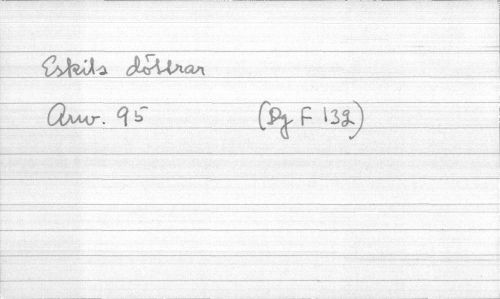 Eskils döttrar
Arw. 95 (Dg F 132)